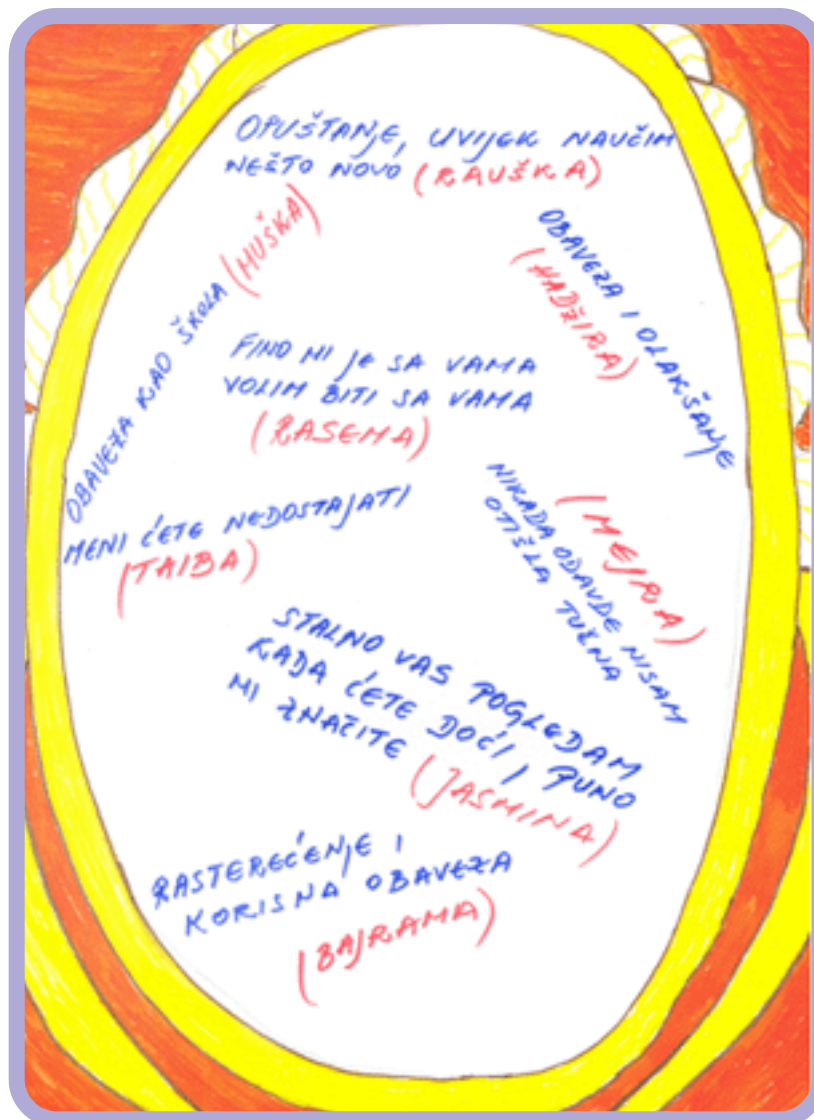 OPUŠTANJE, UVIJEK NAUČIM
NEŠTO NOVO (RAUŠKA)
OBAVEZA KAO ŠKOLA (MUŠKA)
OBAVEZA I OLAKŠANJE
(HADŽIRA)
FINO MI JE SA VAMA
VOLIM BITI SA VAMA
(RASEMA)
MENI ĆETE NEDOSTAJATI
(TAIBA)
NIKADA ODAVDE NISAM
OTIŠLA TUŽNA
(MEJRA)
STALNO VAS POGLEDAM
KADA ĆETE DOĆI, PUNO
MI ZNAČITE (JASMINA)
RASTEREĆENJE I
KORISNA OBAVEZA
(BAJRAMA)